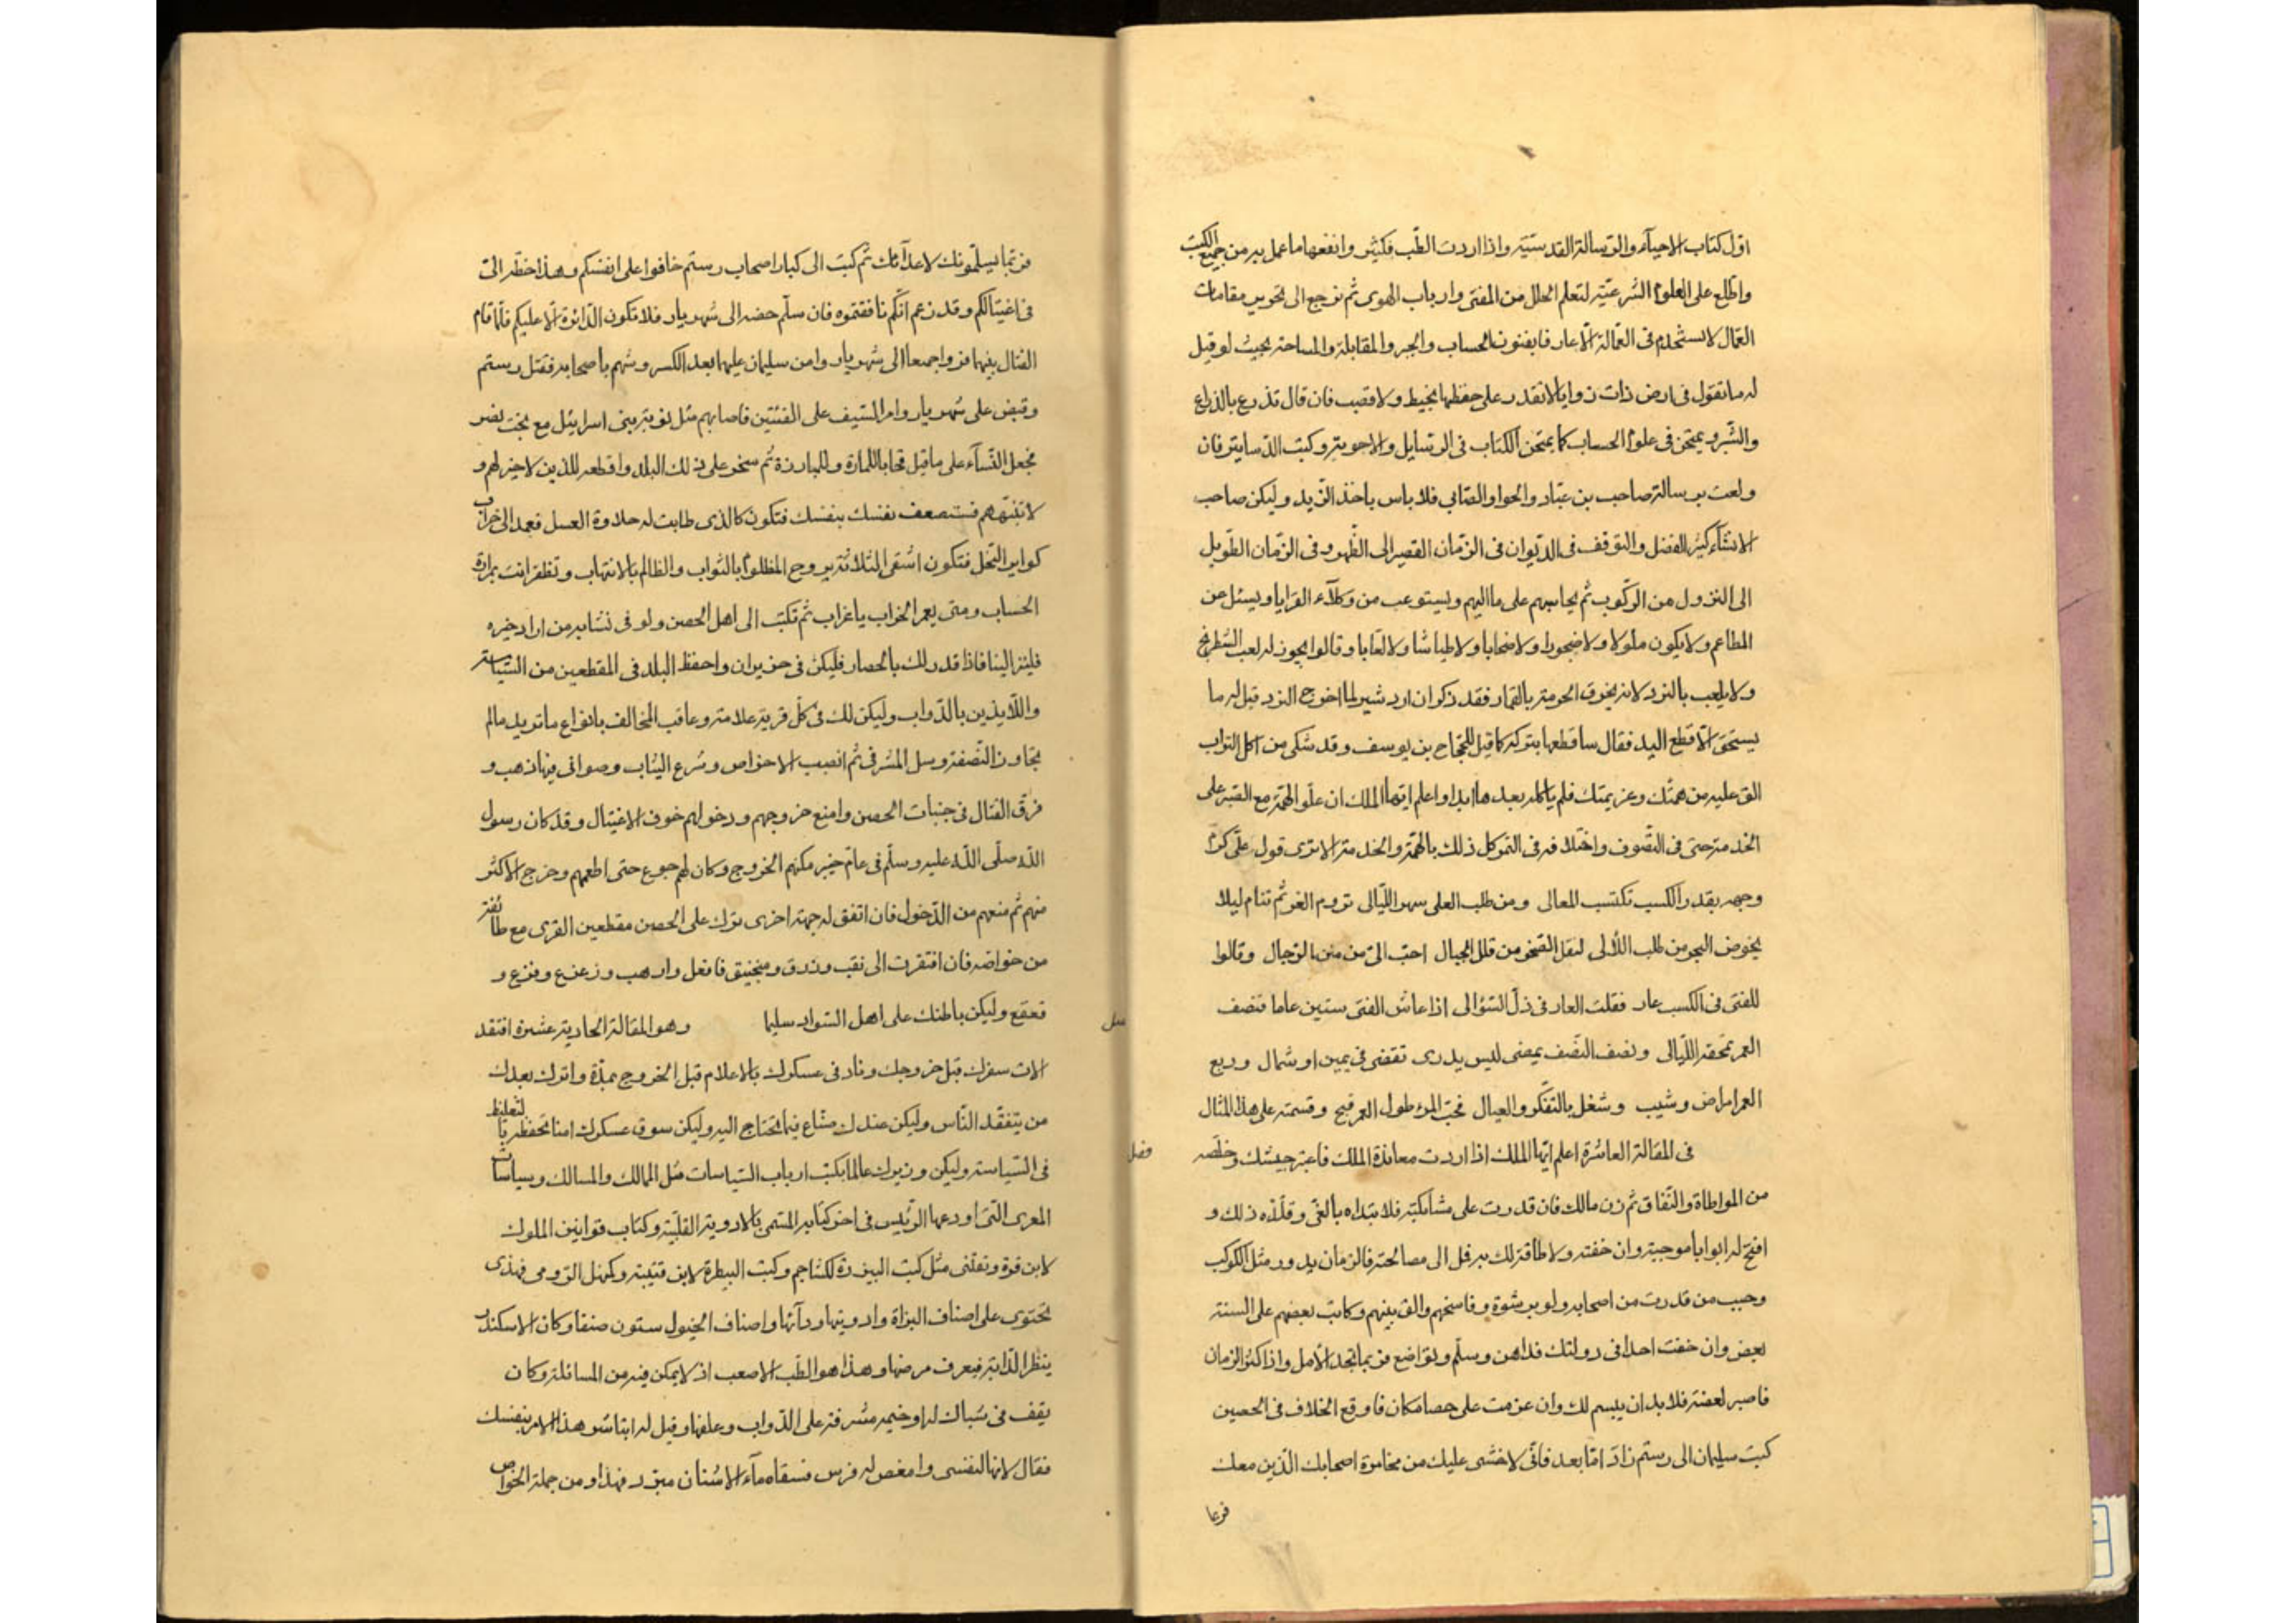 اول كتاب الاحياء والرسالة القدسية واذا اردت الطب فكثير وانفعها ما عمل به من جميع الكتب
واطلع على العلوم الشرعية لتعلم الحلل من المفتى وارباب الهوى ثم نرجع الى تحرير مقامات
العمال لا تستخدم فى العمالة الا عارفا بفنون الحساب والجبر والمقابلة والمساحة بحيث لو قيل
له ما تقول فى ارض ذات زوايا لا تقدر على حفظها بخيط ولا قصب فان قال تذرع بالذراع
والشبر ويمتحن فى علوم الحساب كما يمتحن الكتاب فى الرسايل والاجوبة وكتب الدساتير فان
ولعت برسالة صاحب بن عباد والصابى فلا باس باخذ الزبد وليكن صاحب
الانشاء كثير الفضل والتوقف فى الديوان فى الزمان القصير الى الظهر وفى الزمان الطويل
الى النزول من الركوب ثم يحاسبهم على ما اليهم ويستوعب من وكلاء القرايا ويسئل عن
المطاعم ولا يكون ملولا ولا ضجورا ولا صخابا ولا طياشا ولا لعابا وقالوا يجوز له لعب الشطرنج
ولا يلعب بالنرد لانه يخرق الحرمة بالقمار فقد ذكر ان اردشير لما اخرج النرد قيل له ما
يستحق الا قطع اليد فقال ساقطعها بتركه كما قيل للحجاج بن يوسف وقد شكى من اكل التراب
الق عليه من همتك وعزيمتك فلم ياكله بعدها ابدا واعلم ايها الملك ان علو الهمة مع القبر على
الخدمة حتى فى التصوف واختلافه فى التوكل ذلك بالهمة والخدمة الا ترى قول على كرم
وجهه بقدر الكسب تكتسب المعالى ومن طلب العلى سهر الليالى تروم العز ثم تنام ليلا
يخوض البحر من طلب اللألى لنقل الصخر من قلل الجبال احب الى من منن الرجال وقالوا
للفتى فى الكسب عار فقلت العار فى ذل السؤالى اذا عاش الفتى ستين عاما فنصف
العمر تمحقه الليالى ونصف النصف يمضى ليس يدرى تقضى فى يمين او شمال وربع
العمر امراض وشيب وشغل بالتفكر والعيال فحب المرء طول العمر قبح وقسمته على هذا المثال
فصل فى المقالة العاشرة اعلم ايها الملك اذا اردت معاندة الملك فاعتبر جيشك وخلصه
من المواطاة والنفاق ثم زن مالك فان قدرت على مشابكته فلا تبداه بالغى وقلده ذلك و
افتح له ابوابا موجبة وان خفته ولا طاقة لك به فمل الى مصالحته فالزمان يدور مثل الكوكب
وحبب من قدرت من اصحابه ولو برشوة وفاسخهم والق بينهم وكاتب بعضهم على السنة
بعض وان خفت احدا فى دولتك فداهن وسلم وتواضع فربما تجد الامل واذا كشر الزمان
فاصبر لعضته فلا بد ان يبسم لك وان عزمت على حصار مكان فاوقع الخلاف فى الحصين
كتب سليمان الى رستم زاد اما بعد فانى لا خشى عليك من مخامرة اصحابك الذين معك
فربما
فربما يسلمونك لاعدآئك ثم كتب الى كبار اصحاب رستم خافوا على انفسكم وهذا خطه الى
فى اغتيالكم وقد زعم انكم نافقتموه فان سلم حضه الى شهريار فلا تكون الدائرة الا عليكم فلما قام
القتال بينهما فروا جمعا الى شهريار وامن سليمان عليها بعد الكسر وشهم باصحابه فقتل رستم
وقبض على شهريار وامر السيف على الفئتين فاصابهم مثل نوبة بنى اسرائيل مع بخت نصر
فجعل النسآء على ما قيل قحابا للمارة وللبارزة ثم سخر على ذلك البلد واقطعه للذين لا خير لهم و
لا تنبههم فتستصعف نفسك بنفسك فتكون كالذى طابت له حلاوة العسل فعمد الى خراب
كواير النحل فتكون اشقى الثلاثة يروح المظلوم بالثواب والظالم بالانتهاب وتظفر انت بمرارة
الحساب ومتى يعمر الخراب يا غراب ثم تكتب الى اهل الحصن ولو فى نشابه من اراد خيره
فلينزل الينا فاذا قدر لك بالحصار فليكن فى حزيران واحفظ البلد فى المقطعين من السياسة
واللايذين بالدواب وليكن لك فى كل قرية علامة وعاقب المخالف بانواع ما تريد مالم
يتجاوز النصفة وسل المشرفى ثم انصب الاخواص وشرع الثياب وصوانى فيها ذهب و
فرق القتال فى جنبات الحصن وامنع خروجهم ودخولهم خوف الاغتيال وقد كان رسول
الله صلى الله عليه وسلم فى عام خيبر مكنهم الخروج وكان لهم جوع حتى اطعمهم وخرج الاكثر
منهم ثم منعهم من الدخول فان اتفق له جهة اخرى ترك على الحصن مقطعين القرى مع طائفة
من خواصه فان افتقرت الى نقب وزرق ومنجنيق فافعل وارهب وزعزع وفزع و
قعقع وليكن باطنك على اهل السواد سليما فصل وهو المقالة الحادية عشرة افتقد
الات سفرك قبل خروجك وناد فى عسكرك بالاعلام قبل الخروج بمدة واترك بعدك
من يتفقد الناس وليكن عندك مشاع فيما تحتاج اليه وليكن سوق عسكرك امنا تحفظه
فى السياسة وليكن وزيرك عالما بكتب ارباب السياسات مثل الممالك والمسالك وسياسات
المعرى التى اودعها الرئيس فى اخر كتابه المسمى بالادوية القلبية وكتاب قوانين الملوك
لابن قرة وتقتنى مثل كتب البيزرة لكشاجم وكتب البيطرة لابن قتيبة وكهل الرومى فهذى
تحتوى على اصناف البزاة وادويتها ودآئها واصناف الخيول ستون صنفا وكان الاسكندر
ينظر الدابة فيعرف مرضها وهذا هو الطب الاصعب اذ لا يمكن فيه من المسائلة وكان
يقف فى شباك له او خيمه مشرفة على الدواب وعلفها وقيل له اتباشر هذا الامر بنفسك
فقال لانها لنفسى وامغص له فرس فسقاه مآء الاشنان مبرد فهذا ومن جملة الخواص